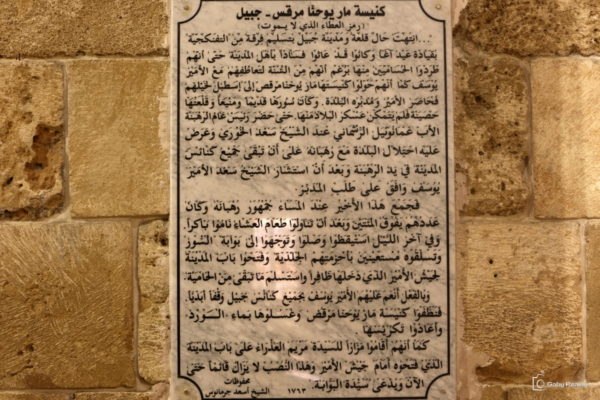 كنيسة مار يوحنا مرقس - جبيل
(رمز العطاء الذي لا يموت)
"... انتهت حال قلعة ومدينة جبيل بتسليم فرقة من التفنكجية
بقيادة عبد آغا وكانوا قد عاثوا فساداً بأهل المدينة حتى أنهم
طردوا الحساميين منها بزعم أنهم من السُنّة لتعاطفهم مع الأمير
يوسف كما أنهم حوّلوا كنيستها مار يوحنا مرقص إلى إسطبل لخيلهم
فحاصر الأمير ومدبّره البلدة. وكان سورها قديماً ومنيعاً وقلعتها
حصينة فلم يتمكن عسكر البلاد منها. حتى حضر رئيس عام الرهبنة
الأب عمانوئيل الرشماني عند الشيخ سعد الخوري وعرض
عليه احتلال البلدة مع رهبانه على أن تبقى جميع كنائس
المدينة في يد الرهبنة وبعد أن استشار الشيخ سعد الأمير
يوسف وافق على طلب المدبّر.
فجمع هذا الأخير عند المساء جمهور رهبانه وكان
عددهم يفوق المئتين وبعد أن تناولوا طعام العشاء ناموا باكراً.
وفي آخر الليل استيقظوا وصلّوا وتوجهوا إلى بوابة السّور
وتسلقوه مستعينين بأحزمتهم الجلدية وفتحوا باب المدينة
لجيش الأمير الذي دخلها ظافراً واستسلم ما تبقى من الحامية.
وبالفعل أنعم عليهم الأمير يوسف بجميع كنائس جبيل وقفاً أبدياً.
فنظفوا كنيسة مار يوحنا مرقص وغسلوها بماء السّورد
وأعادوا تكريسها.
كما أنهم أقاموا مزاراً للسيدة مريم العذراء على باب المدينة
الذي فتحوه أمام جيش الأمير وهذا النُصُب لا يزال قائماً حتى
الآن ويُدعى سيّدة البوابة.
١٧٦٣ محفوظات
الشيخ أسعد جرمانوس